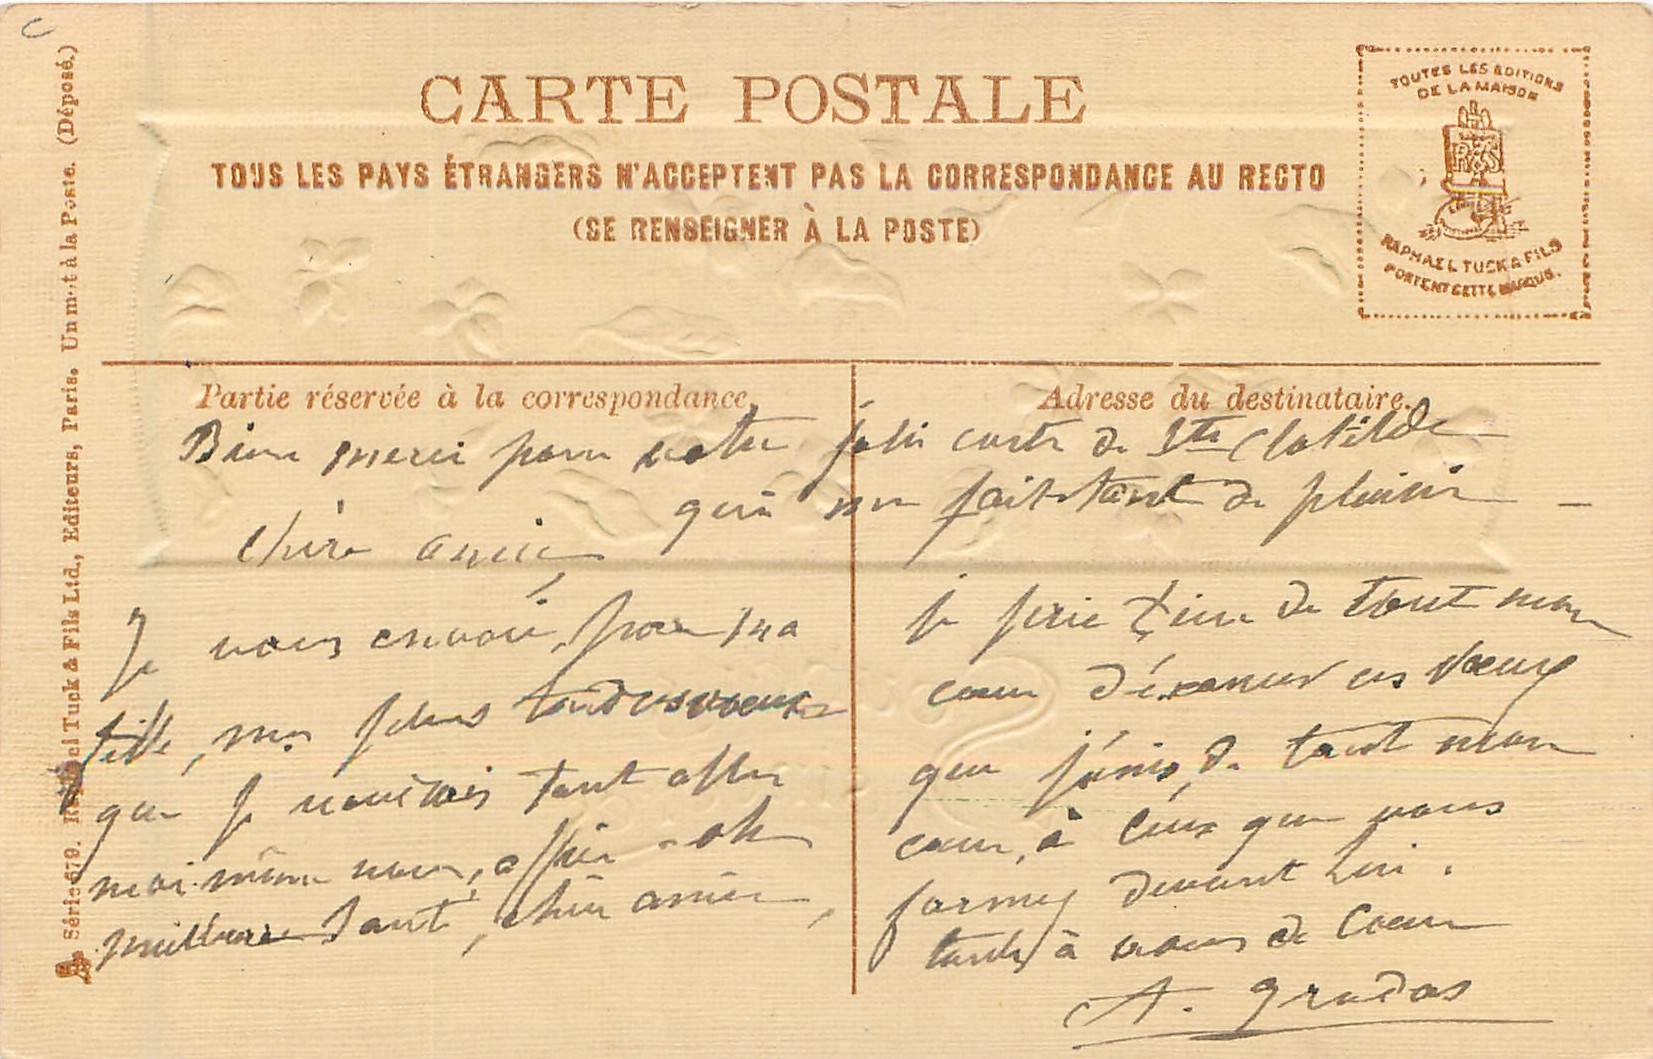 CARTE POSTALE
TOUS LES PAYS ÉTRANGERS N'ACCEPTENT PAS LA CORRESPONDANCE AU RECTO
(SE RENSEIGNER À LA POSTE)
TOUTES LES EDITIONS
DE LA MAISON
RAPHAEL TUCK & FILS
PORTENT CETTE MARQUE.
Série 679. Raphael Tuck & Fils Ltd., Editeurs, Paris. Un mot à la Poste. (Déposé.)
Partie réservée à la correspondance.
Adresse du destinataire.
Bien merci pour votre joli carte de Ste Clotilde
qui me fait tant de plaisir —
chère amie
Je vous envoie, pour ma
fille, mes plus tendres voeux
que je voudrais tant aller
moi-même vous offrir
meilleure santé, chère amie,
je prie Dieu de tout mon
coeur d'éxaucer ces voeux
que j'unis, de tout mon
coeur, à ceux que vous
formez devant Lui.
à vous de Coeur
A. Gradas